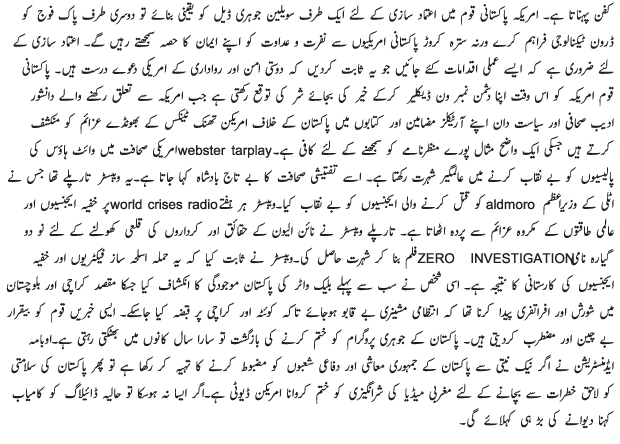 کفن پہناتا ہے۔ امریکہ پاکستانی قوم میں اعتماد سازی کے لئے ایک طرف سویلین جوہری ڈیل کو یقینی بنائے تو دوسری طرف پاک فوج کو
ڈرون ٹیکنالوجی فراہم کرے ورنہ سترہ کروڑ پاکستانی امریکیوں سے نفرت و عداوت کو اپنے ایمان کا حصہ سمجھتے رہیں گے۔ اعتماد سازی کے
لئے ضروری ہے کہ ایسے عملی اقدامات کئے جائیں جو یہ ثابت کردیں کہ دوستی امن اور رواداری کے امریکی دعوے درست ہیں۔ پاکستانی
قوم امریکہ کو اس وقت اپنا دشمن نمبر ون ڈیکلیر کرکے خیر کی بجائے شر کی توقع رکھتی ہے جب امریکہ سے تعلق رکھنے والے دانشور
ادیب صحافی اور سیاست دان اپنے آرٹیکلز مضامین اور کتابوں میں پاکستان کے خلاف امریکن تھنک ٹینکس کے بھونڈے عزائم کو منکشف
کرتے ہیں جسکی ایک واضح مثال پورے منظرنامے کو سمجھنے کے لئے کافی ہے۔webster tarplayامریکی صحافت میں وائٹ ہاؤس کی
پالیسیوں کو بے نقاب کرنے میں عالمگیر شہرت رکھتا ہے۔ اسے تفتیشی صحافت کا بے تاج بادشاہ کہا جاتا ہے۔یہ ویبسٹر تارپلے تھا جس نے
اٹلی کے وزیراعظم aldmoro کو قتل کرنے والی ایجنسیوں کو بے نقاب کیا۔ویبسٹر ہر ہفتےworld crises radioپر خفیہ ایجنسیوں اور
عالمی طاقتوں کے مکروہ عزائم سے پردہ اٹھاتا ہے۔ تارپلے ویبسٹر نے نائن الیون کے حقائق اور کرداروں کی قلعی کھولنے کے لئے نو دو
گیارہ نامیZERO INVESTIGATIONفلم بنا کر شہرت حاصل کی۔ویبسٹر نے ثابت کیا کہ یہ حملہ اسلحہ ساز فیکٹریوں اور خفیہ
ایجنسیوں کی کارستانی کا نتیجہ ہے۔ اسی شخص نے سب سے پہلے بلیک واٹر کی پاکستان موجودگی کا انکشاف کیا جسکا مقصد کراچی اور بلوچستان
میں شورش اور افراتفری پیدا کرنا تھا کہ انتظامی مشینری بے قابو ہوجائے تاکہ کوئٹہ اور کراچی پر قبضہ کیا جاسکے۔ ایسی خبریں قوم کو بیقرار
بے چین اور مضطرب کردیتی ہیں۔ پاکستان کے جوہری پروگرام کو ختم کرنے کی بازگشت تو سارا سال کانوں میں بھنکتی رہتی ہے۔اوبامہ
ایڈمنسٹریشن نے اگر نیک نیتی سے پاکستان کے جمہوری معاشی اور دفاعی شعبوں کو مضبوط کرنے کا تہیہ کر رکھا ہے تو پھر پاکستان کی سلامتی
کو لاحق خطرات سے بچانے کے لئے مغربی میڈیا کی شرانگیزی کو ختم کروانا امریکن ڈیوٹی ہے۔اگر ایسا نہ ہوسکا تو حالیہ ڈائیلاگ کو کامیاب
کہنا دیوانے کی بڑ ہی کہلائے گی۔